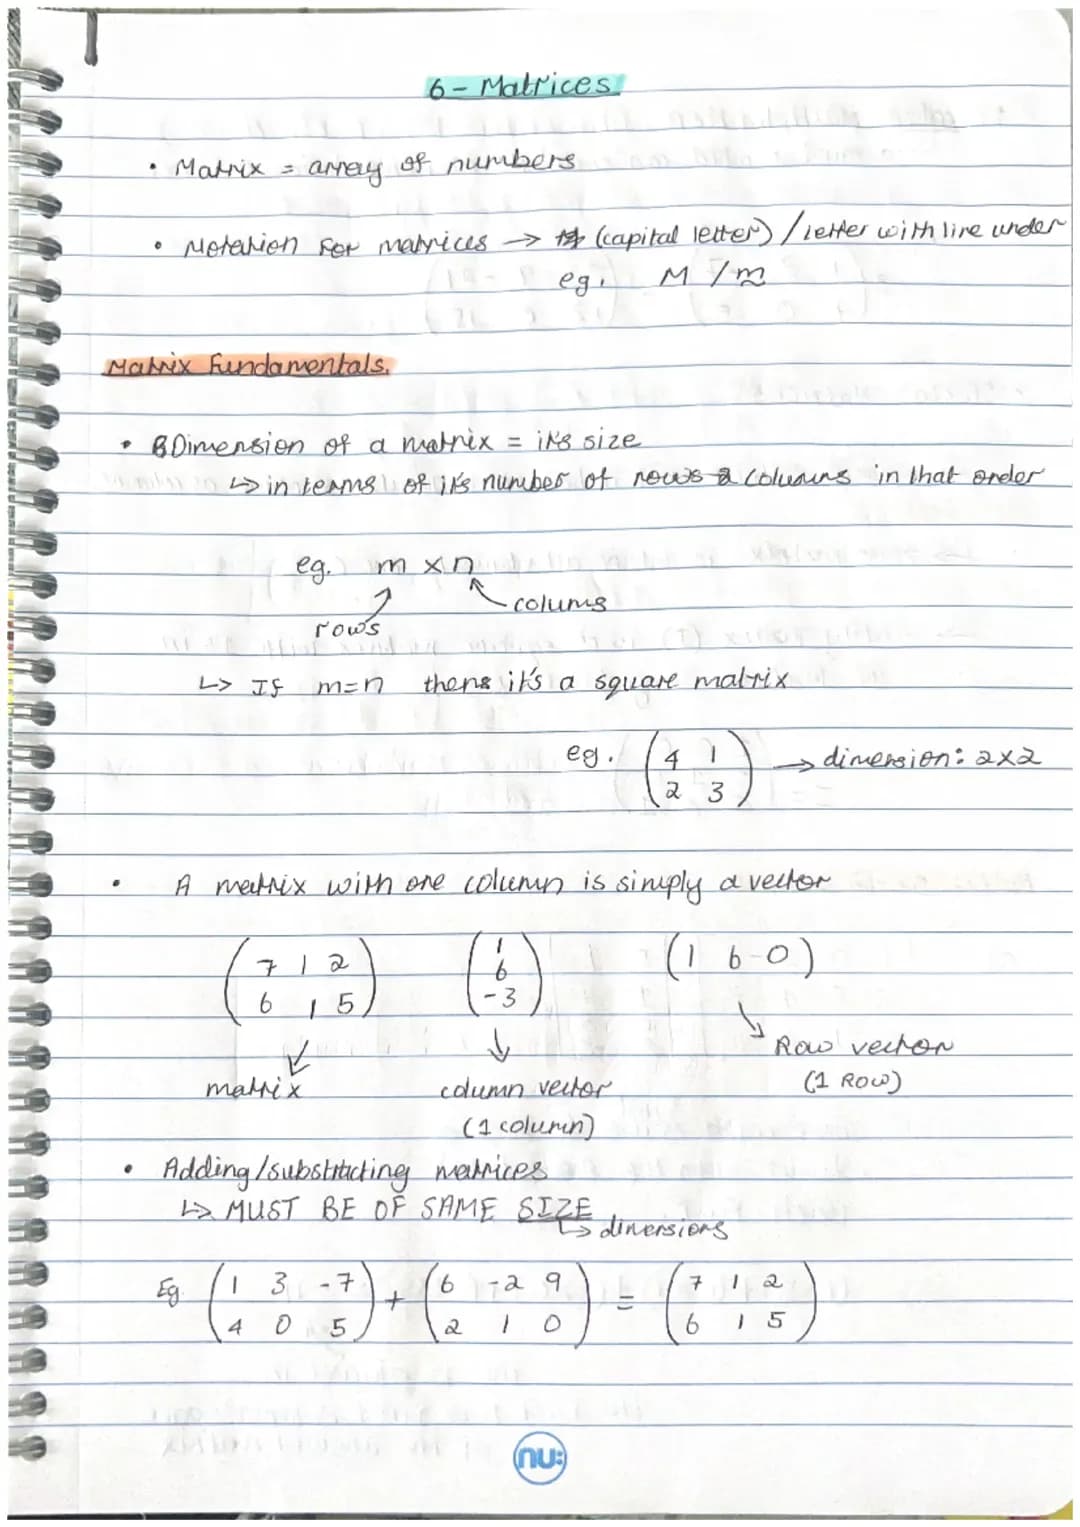 6 - Matrices
• Matrix = array of numbers
• Notation for matrices → (capital letter) / letter with line under
eg. M / m
Matrix Fundamentals.
• Dimension of a matrix = it's size
↳ in terms of it's number of rows & columns in that order
eg. m × n
colums
rows
↳ If m=n then it's a square matrix
eg. (4 1
2 3) → dimension: 2×2
• A matrix with one column is simply a vector
(7 1 2
6 1 5) (1
6
-3) (1 6 -0)
matrix column vector (1 column) Row vector (1 Row)
• Adding/substracting matrices
↳ MUST BE OF SAME SIZE
↳ dimensions
Eg. (1 3 -7
4 0 5) + (6 -2 9
2 1 0) = (7 1 2
6 1 5)
nu: